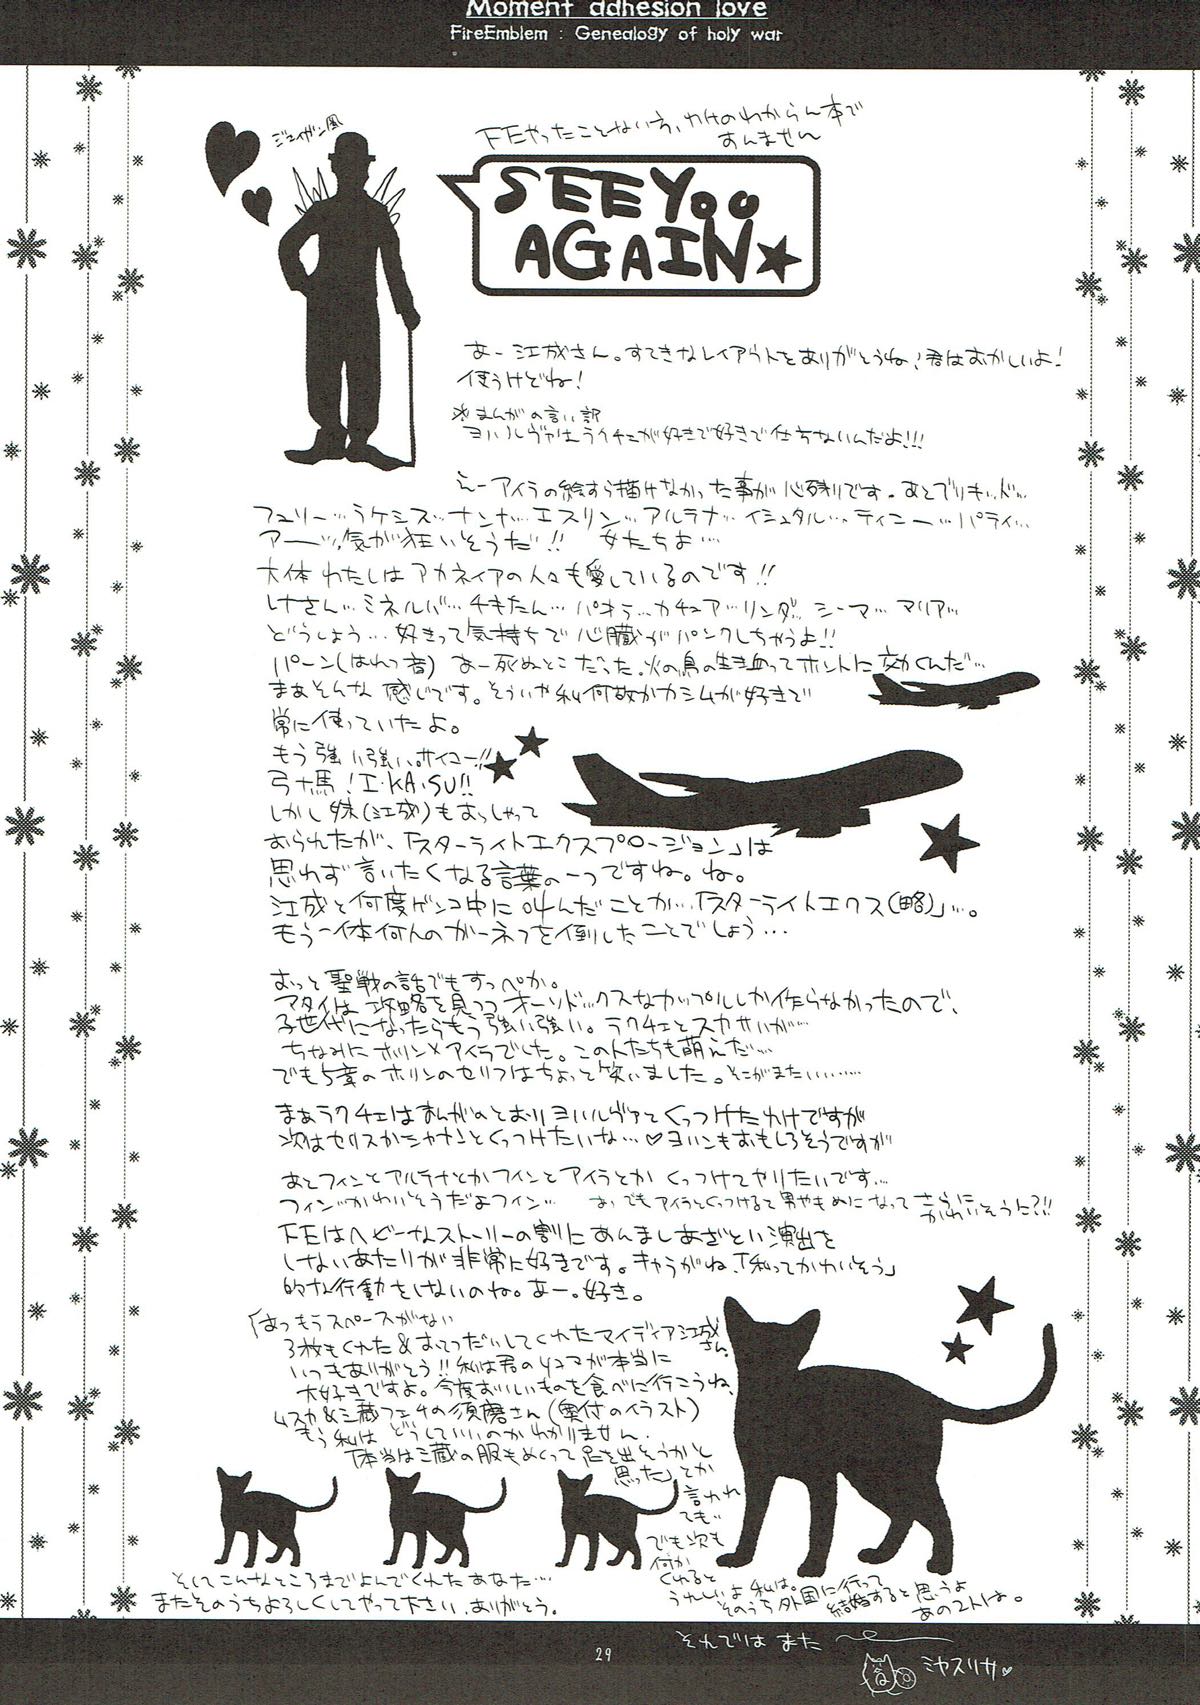 Moment adhesion love
FireEmblem : Genealogy of holy war
ジェイガン風
FEやったことない方、わけのわからん本で
すんません
SEE YOU
AGAIN★
あー江成さん。すてきなレイアウトをありがとうね!君はおかしいよ!
使うけどね!
*まんがの言い訳
ヨハルヴァはラクチェが好きで好きで仕方ないんだよ!!!
えーアイラの絵すら描けなかった事が心残りです。あとブリギッド…
フュリー…ラケシス…ナンナ…エスリン…アルテナ…イシュタル…ティニー…パティ…
アーッ、気が狂いそうだ!! 女たちよ…
大体わたしはアカネイアの人々も愛しているのです!!
レナさん…ミネルバ…チキたん…パオラ…カチュア…リンダ…シーマ…マリア…
どうしよう…好きって気持ちで心臓がパンクしちゃうよ!!
パーン(はれつ音) あー死ぬとこだった。火の鳥の生き血ってホントに効くんだ…
まあそんな感じです。そういや私何故かカシムが好きで
常に使っていたよ。
もう強い強い。サイコー!!
弓+馬!I・KA・SU!!
しかし妹(江成)もおっしゃって
おられたが、「スターライトエクスプロージョン」は
思わず言いたくなる言葉の一つですね。ね。
江成と何度ゲンコ中に叫んだことか…「スターライトエクス(略)」…。
もう一体何人のガーネフを倒したことでしょう…
おっと聖戦の話でもすっぺか。
アタイは攻略を見つつオーソドックスなカップルしか作らなかったので、
子世代になったらもう強い強い。ラクチェとスカサハが…
ちなみにホリン×アイラでした。この人たちも萌えだ…
でも5章のホリンのセリフはちょっと笑いました。そこがまたいい………
まあラクチェはまんがのとおりヨハルヴァとくっつけたわけですが
次はセリスかシャナンとくっつけたいな…♡ヨハンもおもしろそうですが
あとフィンとアルテナとかフィンとアイラとかくっつけてやりたいです…
フィン…かわいそうだよフィン… あっでもアイラとくっつけると男やもめになってさらに
かわいそうに?!!
FEはヘビーなストーリーの割にあんましあざとい演出を
しないあたりが非常に好きです。キャラがね、「私ってかわいそう」
的な行動をしないのね。あー。好き。
はっもうスペースがない
3枚もくれた&おてつだいしてくれたマイディア江成
さん。
いつもありがとう!!私は君の4コマが本当に
大好きですよ。今度おいしいものを食べに行こうね、
ムスカ&三蔵フェチの須磨さん(奥付のイラスト)
もう私はどうしていいのかわかりません。
「本当は三蔵の服もめくって足を出そうかと
思った」とか
言われ
ても…
でも次も
何か
くれると
うれしいよ私は。
そのうち外国に行って
結婚すると思うよ
あの2人は。
そしてこんなところまでよんでくれたあなた…
またそのうちよろしくしてやって下さい。ありがとう。
それではまた
29
ミヤスリサ♡